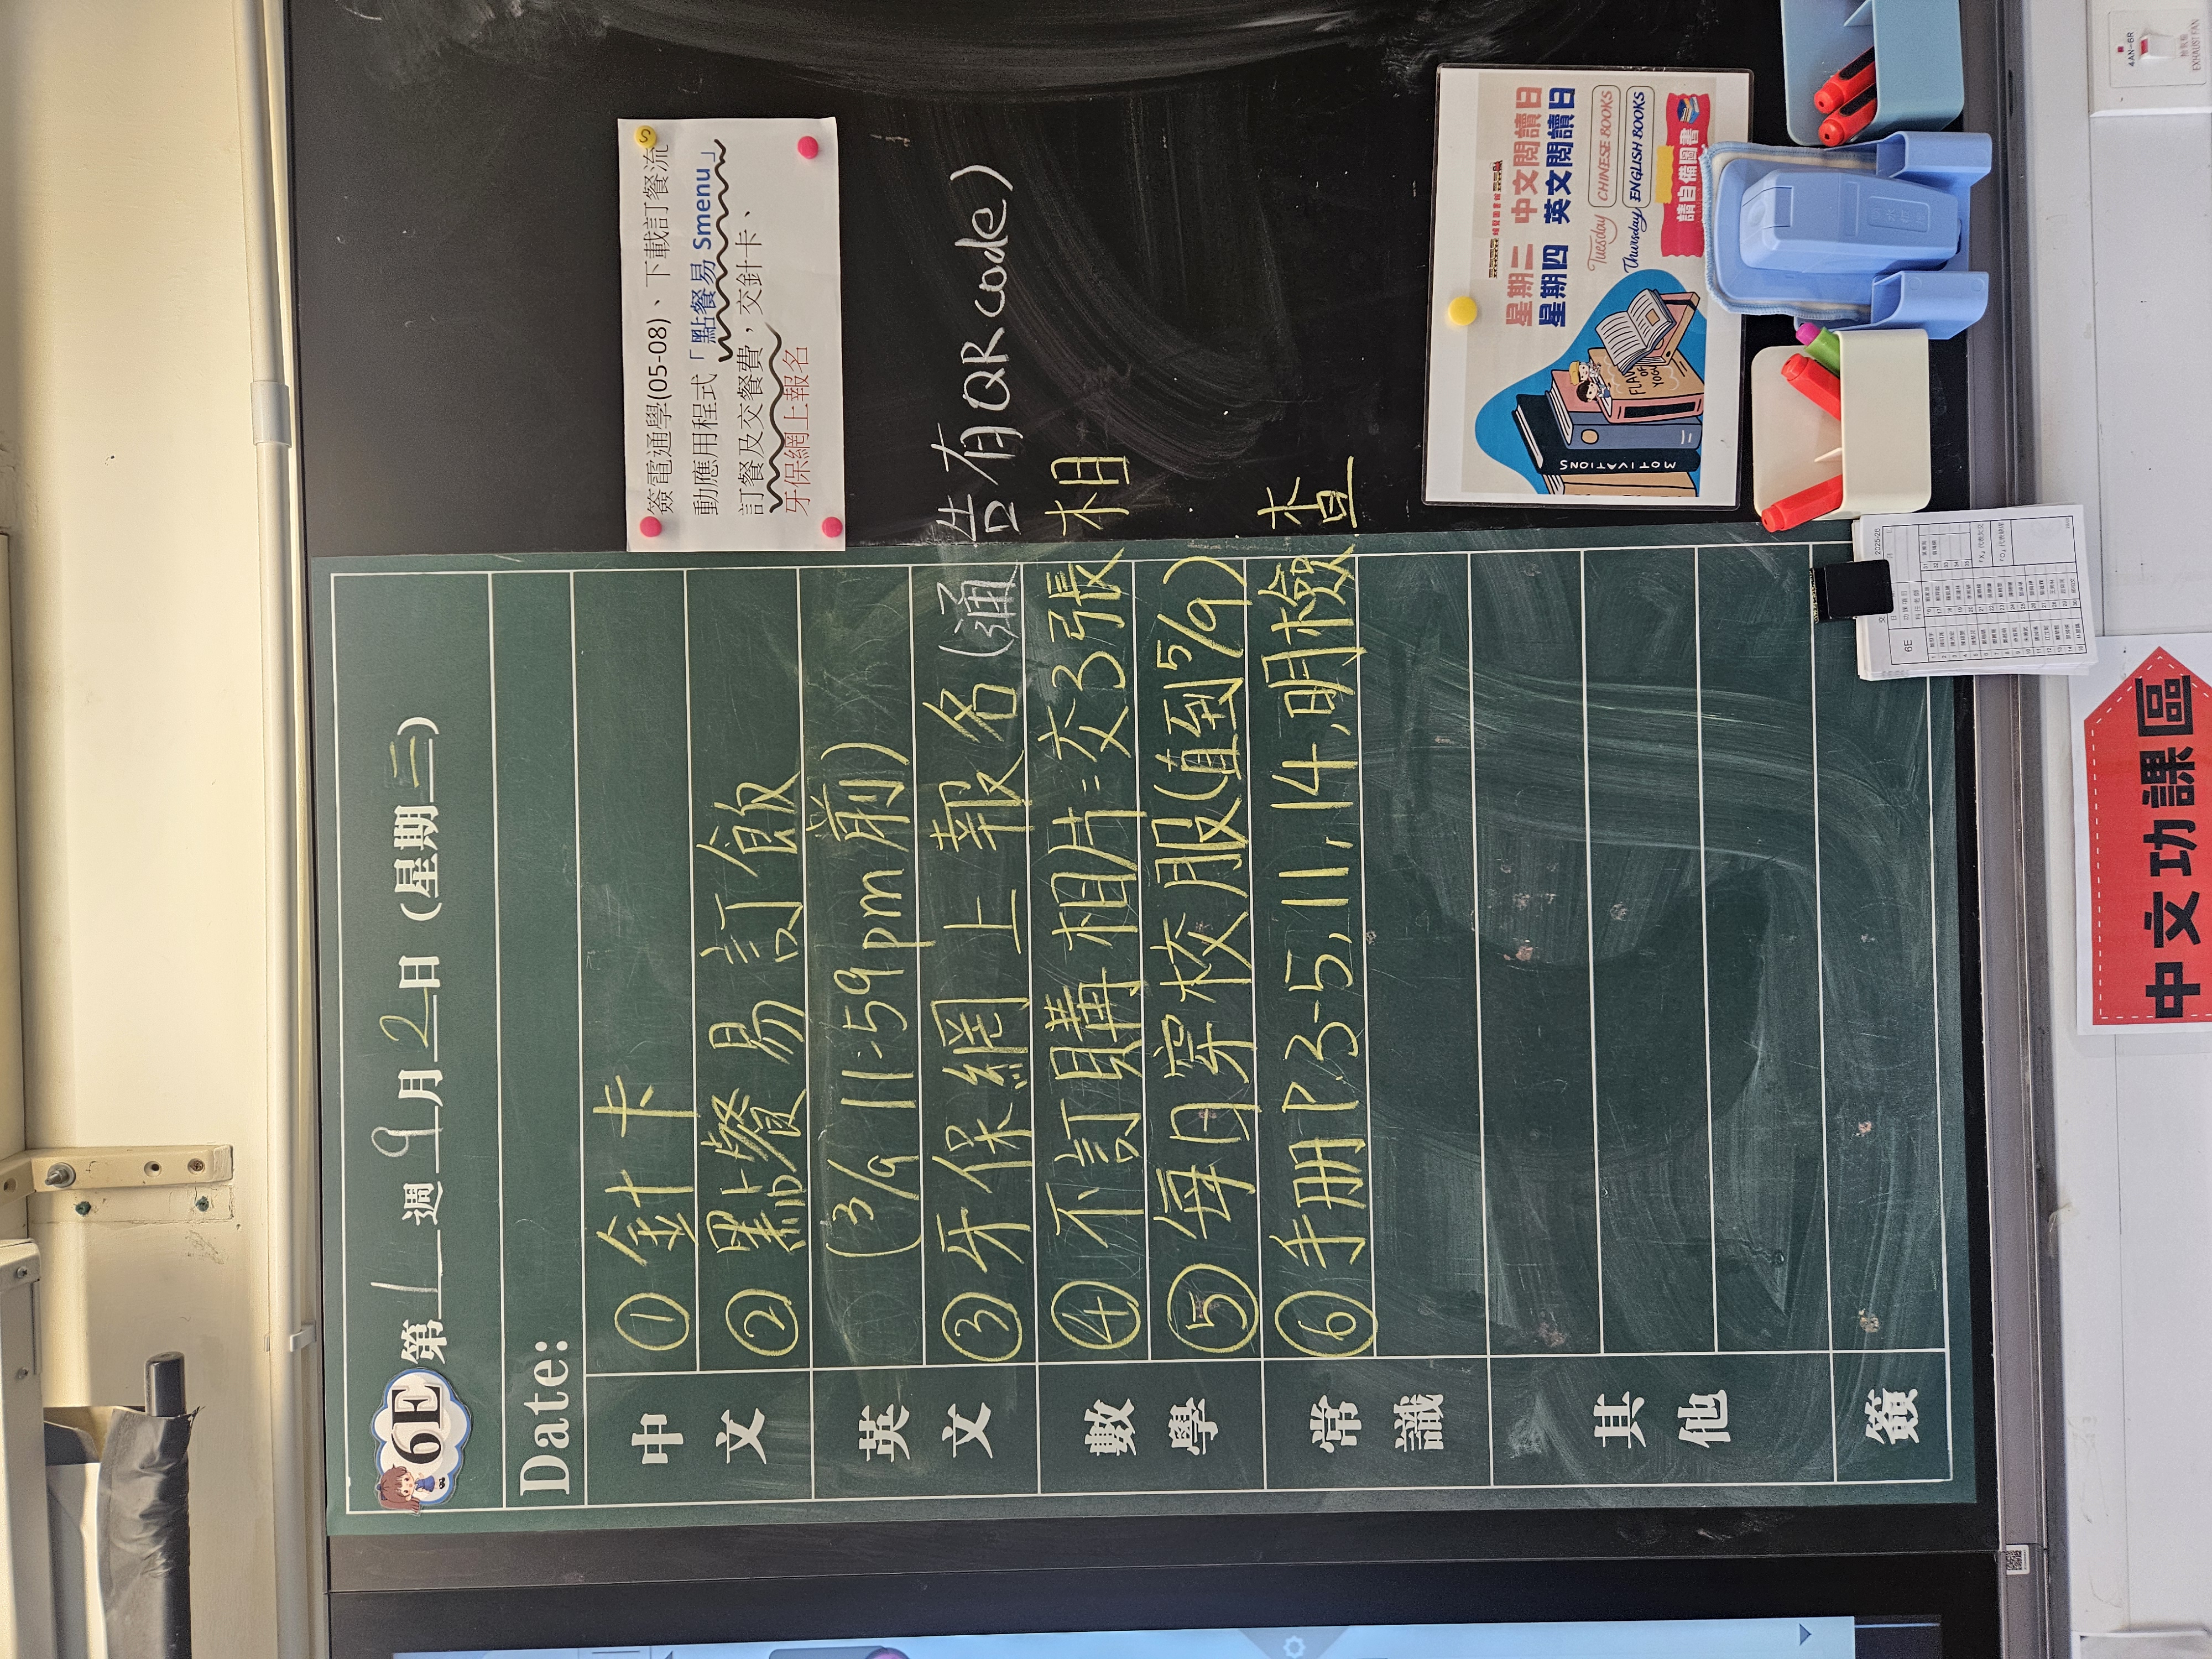 6E 第1週9月2日(星期三)
Date:
中文
英文
數學
常識
其他
簽
①針卡
②點餐易訂飯
(3/9 11:59pm前)
③牙保網上報名(通告有QR code)
④不訂購相片:交3張相
⑤每日穿校服(值到5/9)
⑥手冊P.3-5,11,14,明檢查
簽電通學(05-08)、下載訂餐流
動應用程式「點餐易 Smenu」
訂餐及交餐費,交針卡、
牙保網上報名
星期二 中文閱讀日
星期四 英文閱讀日
Tuesday CHINESE BOOKS
Thursday ENGLISH BOOKS
請自備圖書
MOTIVATIONS
中文功課區
6E
2025-26
「X」代表欠交
4AN-6R
EXHAUST FAN